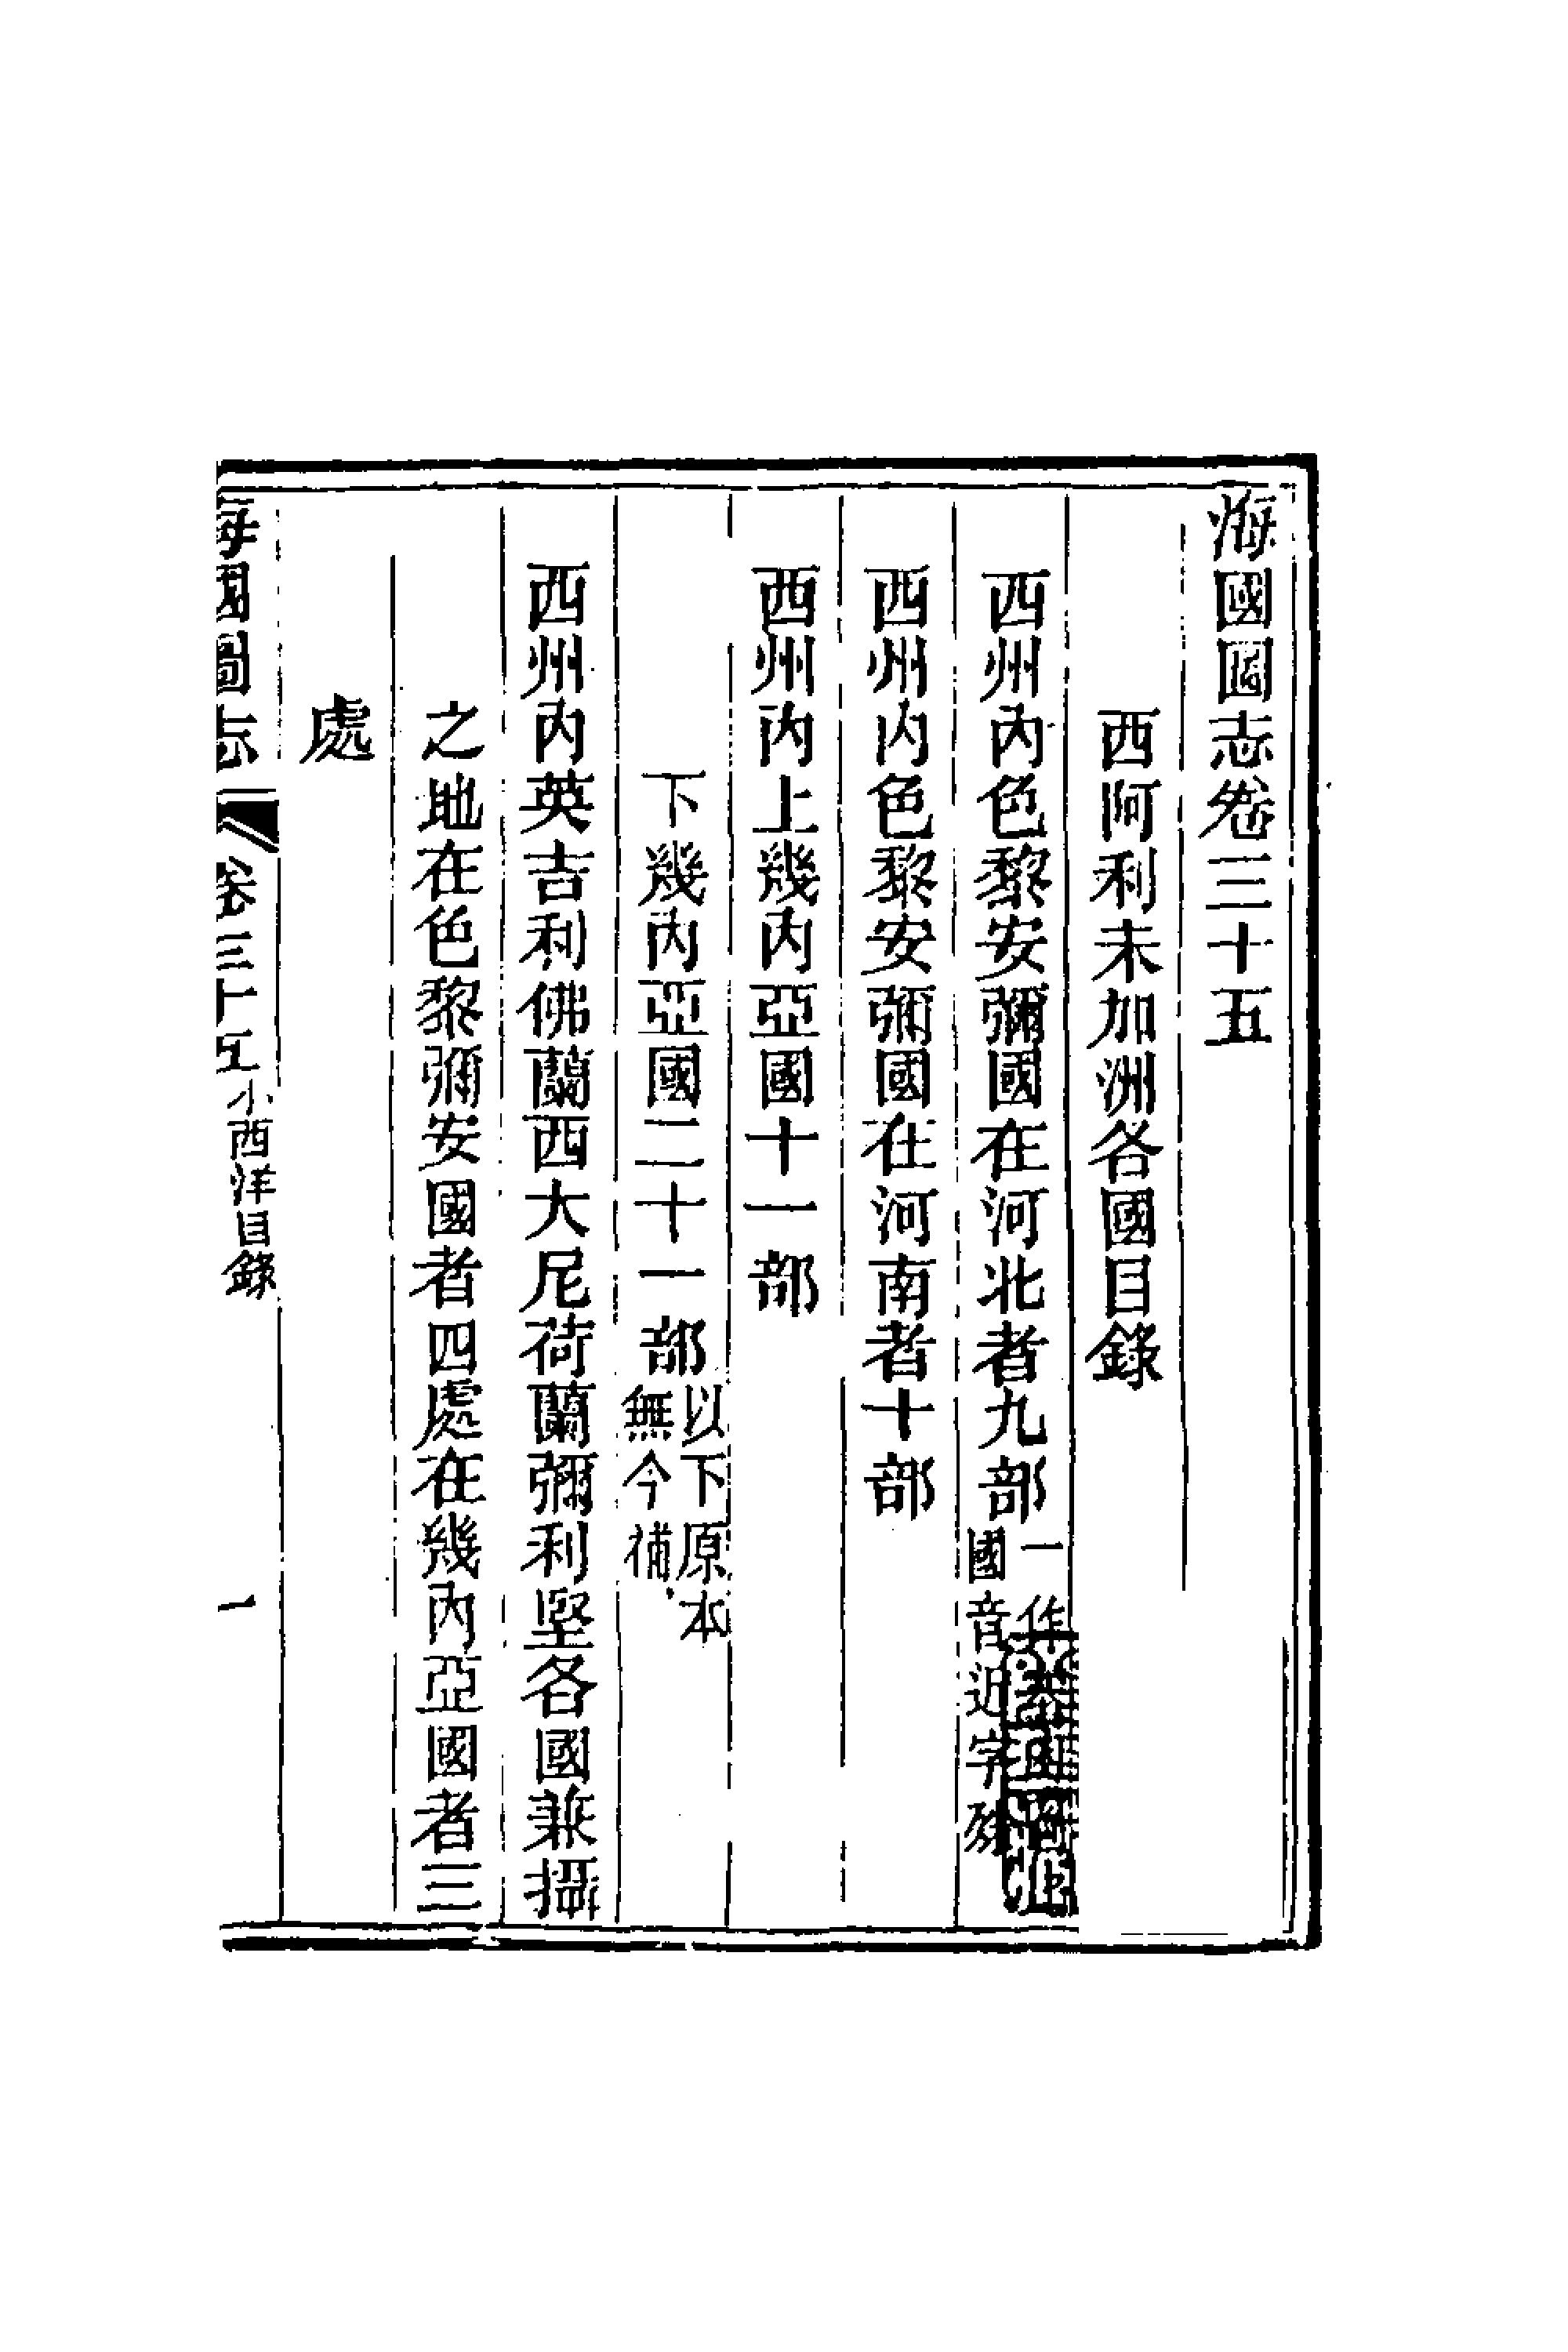 海國圖志卷三十五
西阿利未加洲各國目錄
西州內色黎安彌國在河北者九部一作
國音近字殊
西州內色黎安彌國在河南者十部
西州內上幾內亞國十一部
下幾內亞國二十一部以下原本
無今補
西州內英吉利佛蘭西大尼荷蘭彌利堅各國兼攝
之地在色黎彌安國者四處在幾內亞國者三
處
海國圖志 卷三十五 小西洋目錄 一